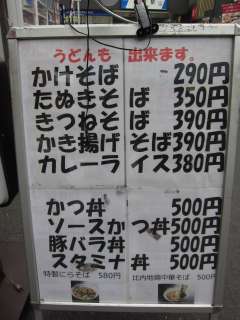 うどんも 出来ます。
かけそば 290円
たぬきそば 350円
きつねそば 390円
かき揚げそば 390円
カレーライス 380円
かつ丼 500円
ソースかつ丼 500円
豚バラ丼 500円
スタミナ丼 500円
特製にらそば 580円
比内地鶏中華そば 500円